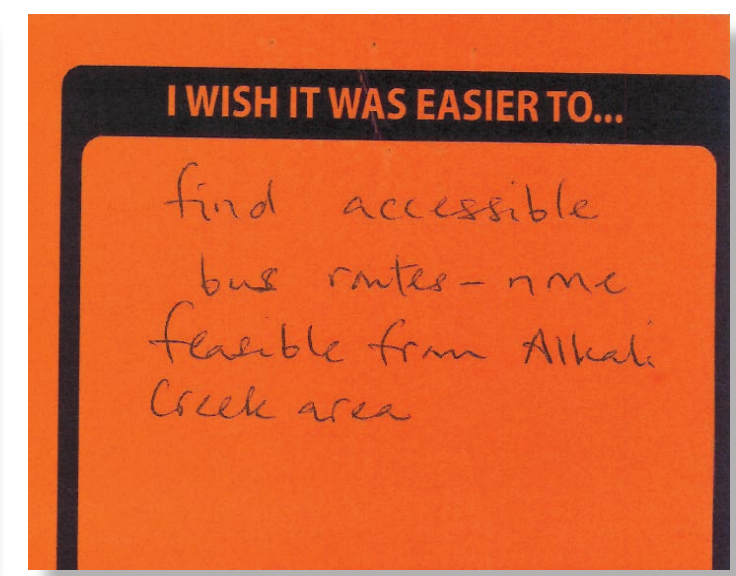 I WISH IT WAS EASIER TO...
find accessible
bus routes - none
feasible from Alkali
Creek area